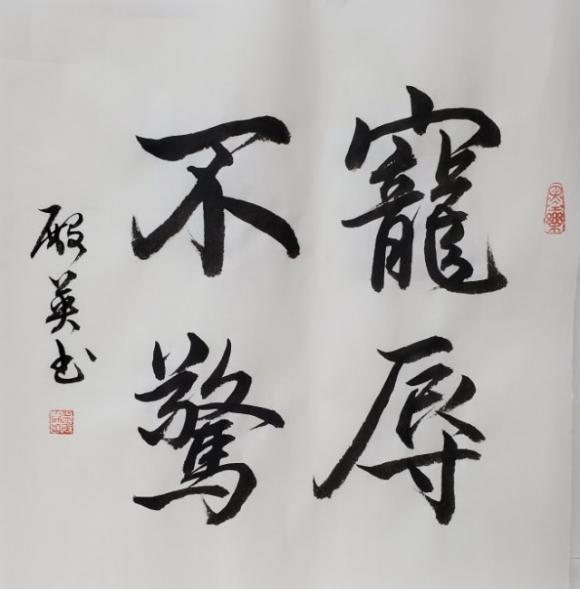 寵辱
不驚
殷英书